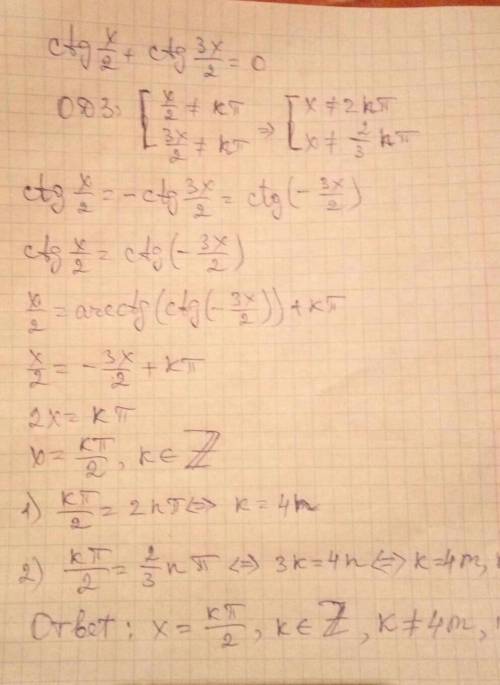 ctg x/2 + ctg 3x/2 = 0
ОДЗ: [ x/2 ≠ kπ ; 3x/2 ≠ kπ ⇒ [ x ≠ 2kπ ; x ≠ 2/3 kπ
ctg x/2 = -ctg 3x/2 = ctg(- 3x/2)
ctg x/2 = ctg(- 3x/2)
x/2 = arcctg(ctg(- 3x/2)) + kπ
x/2 = - 3x/2 + kπ
2x = kπ
x = kπ/2, k ∈ ℤ
1) kπ/2 = 2nπ ⇔ k = 4n
2) kπ/2 = 2/3 nπ ⇔ 3k = 4n ⇔ k = 4m,
Ответ: x = kπ/2, k ∈ ℤ, k ≠ 4m,